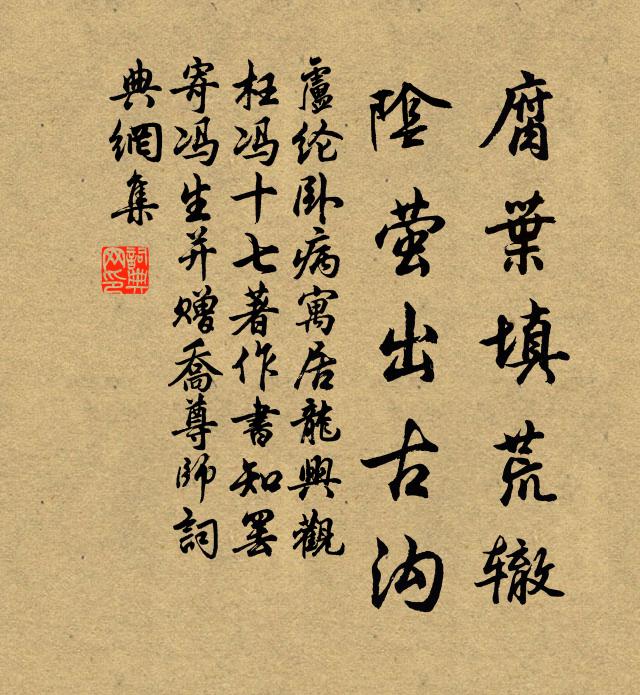 腐葉填荒辙
陰萤出古沟
盧纶卧病寓居龍興觀
枉冯十七著作書知罢
寄冯生并赠喬尊師詞
典網集
詞典
网印